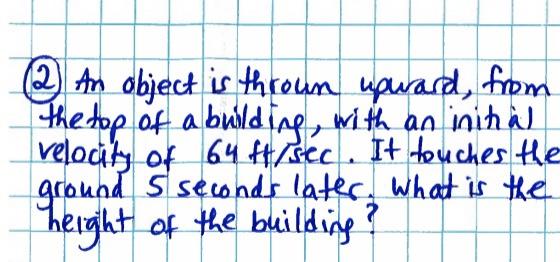 ② An object is thrown upward, from
the top of a building, with an initial
velocity of 64 ft/sec. It touches the
ground 5 seconds later. What is the
height of the building?